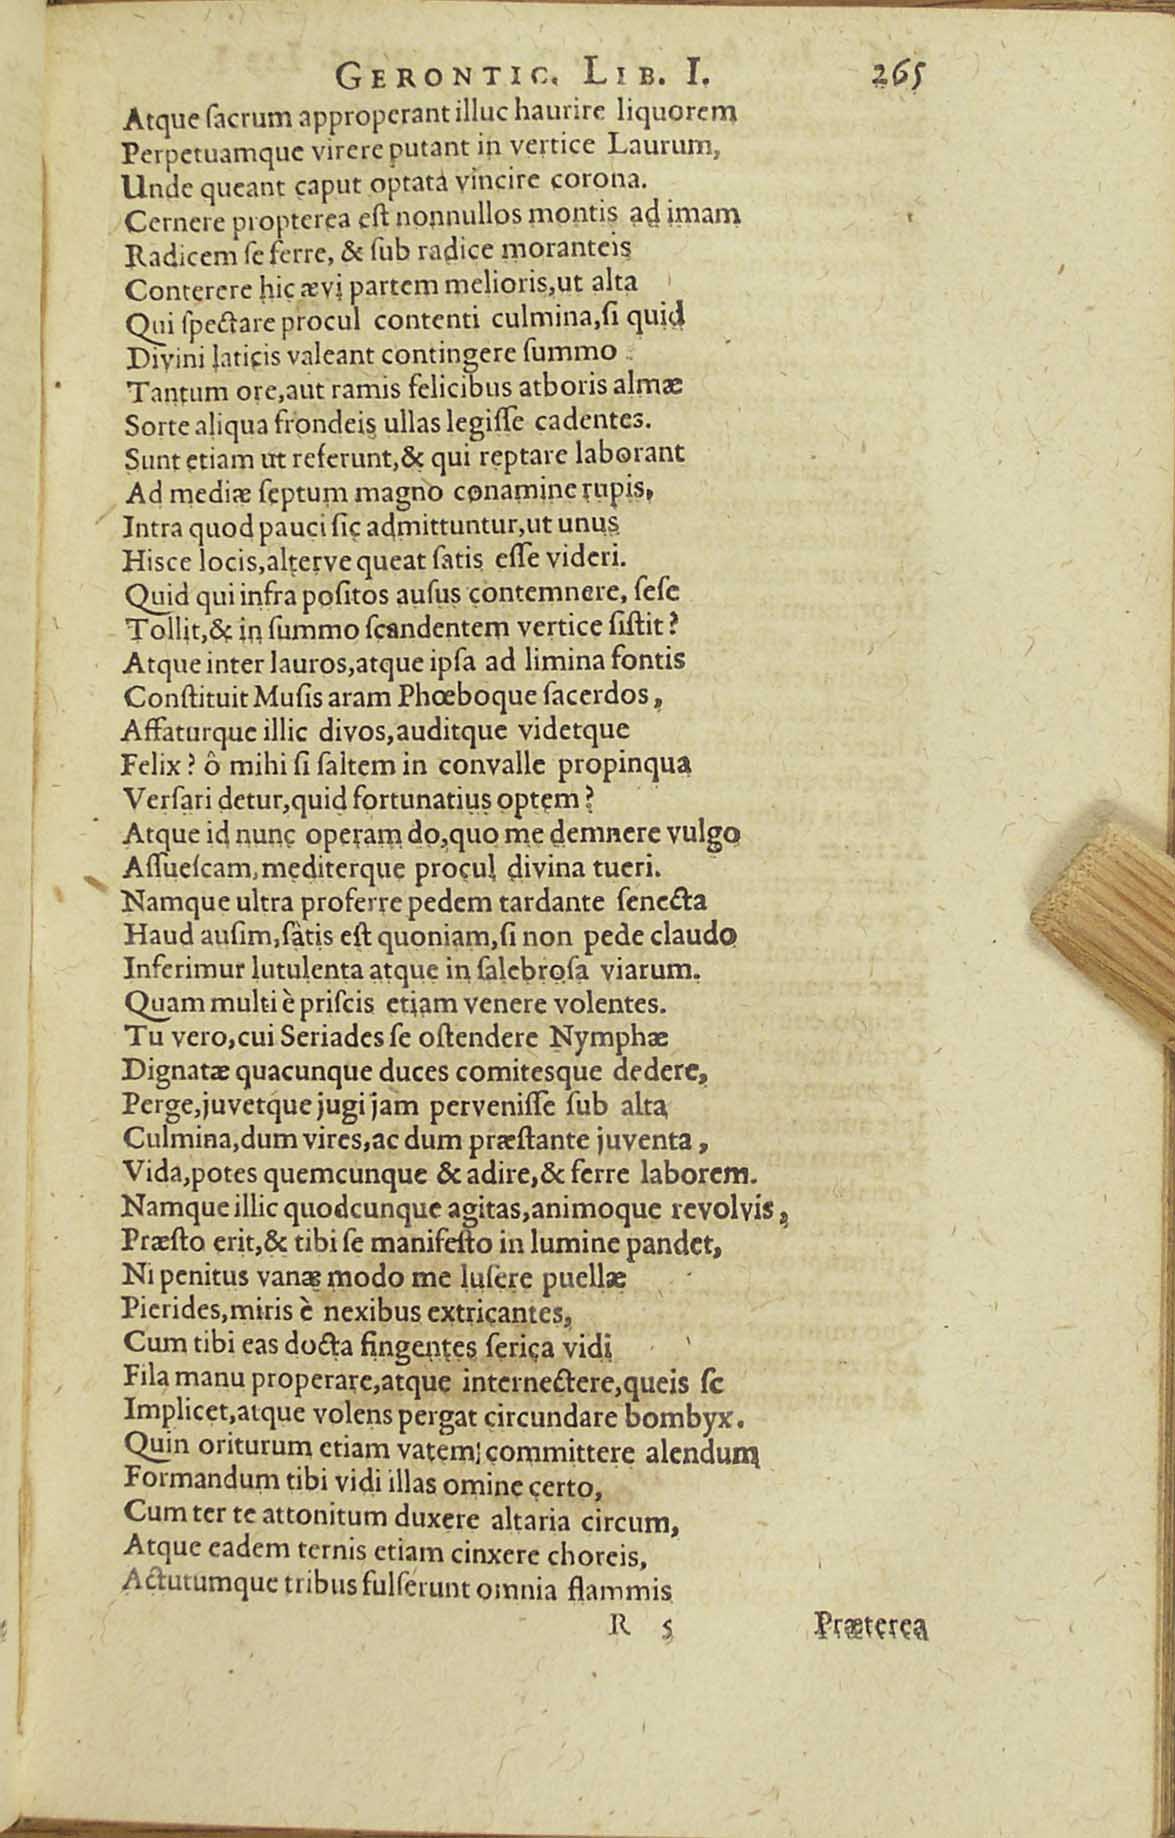 GERONTIC. LIB. I. 265
Atque ſacrum approperant illuc haurire liquorem
Perpetuamque virere putant in vertice Laurum,
Unde queant caput optatâ vincire corona.
Cernere propterea eſt nonnullos montis ad imam
Radicem ſe ferre, & ſub radice moranteis
Conterere hic ævi partem melioris,ut alta
Qui ſpectare procul contenti culmina,ſi quid
Divini laticis valeant contingere ſummo
Tantum ore,aut ramis felicibus atboris almæ
Sorte aliqua frondeis ullas legiſſe cadentes.
Sunt etiam ut referunt,& qui reptare laborant
Ad mediæ ſeptum magno conamine rupis,
Intra quod pauci ſic admittuntur,ut unus
Hisce locis,alterve queat ſatis eſſe videri.
Quid qui infra poſitos auſus contemnere, ſeſe
Tollit,& in ſummo ſcandentem vertice ſiſtit?
Atque inter lauros,atque ipſa ad limina fontis
Conſtituit Muſis aram Phœboque ſacerdos,
Affaturque illic divos,auditque videtque
Felix? ô mihi ſi ſaltem in convalle propinqua
Verſari detur,quid fortunatius optem?
Atque id nunc operam do,quo me demnere vulgo
Aſſueſcam,mediterque procul divina tueri.
Namque ultra proferre pedem tardante ſenecta
Haud auſim,ſatis eſt quoniam,ſi non pede claudo
Inferimur lutulenta atque in ſalebroſa viarum.
Quam multi è priſcis etiam venere volentes.
Tu vero,cui Seriades ſe oſtendere Nymphæ
Dignatæ quacunque duces comitesque dedere,
Perge,juvetque jugi jam perveniſſe ſub alta
Culmina,dum vires,ac dum præſtante juventa,
Vida,potes quemcunque & adire,& ferre laborem.
Namque illic quodcunque agitas,animoque revolvis,
Præſto erit,& tibi ſe manifeſto in lumine pandet,
Ni penitus vanæ modo me luſere puellæ
Pierides,miris è nexibus extricantes,
Cum tibi eas docta fingentes ſerica vidi
Fila manu properare,atque internectere,queis ſe
Implicet,atque volens pergat circundare bombyx.
Quin oriturum etiam vatem committere alendum
Formandum tibi vidi illas omine certo,
Cum ter te attonitum duxere altaria circum,
Atque eadem ternis etiam cinxere choreis,
Actutumque tribus fulſerunt omnia flammis
R 5 Præterea